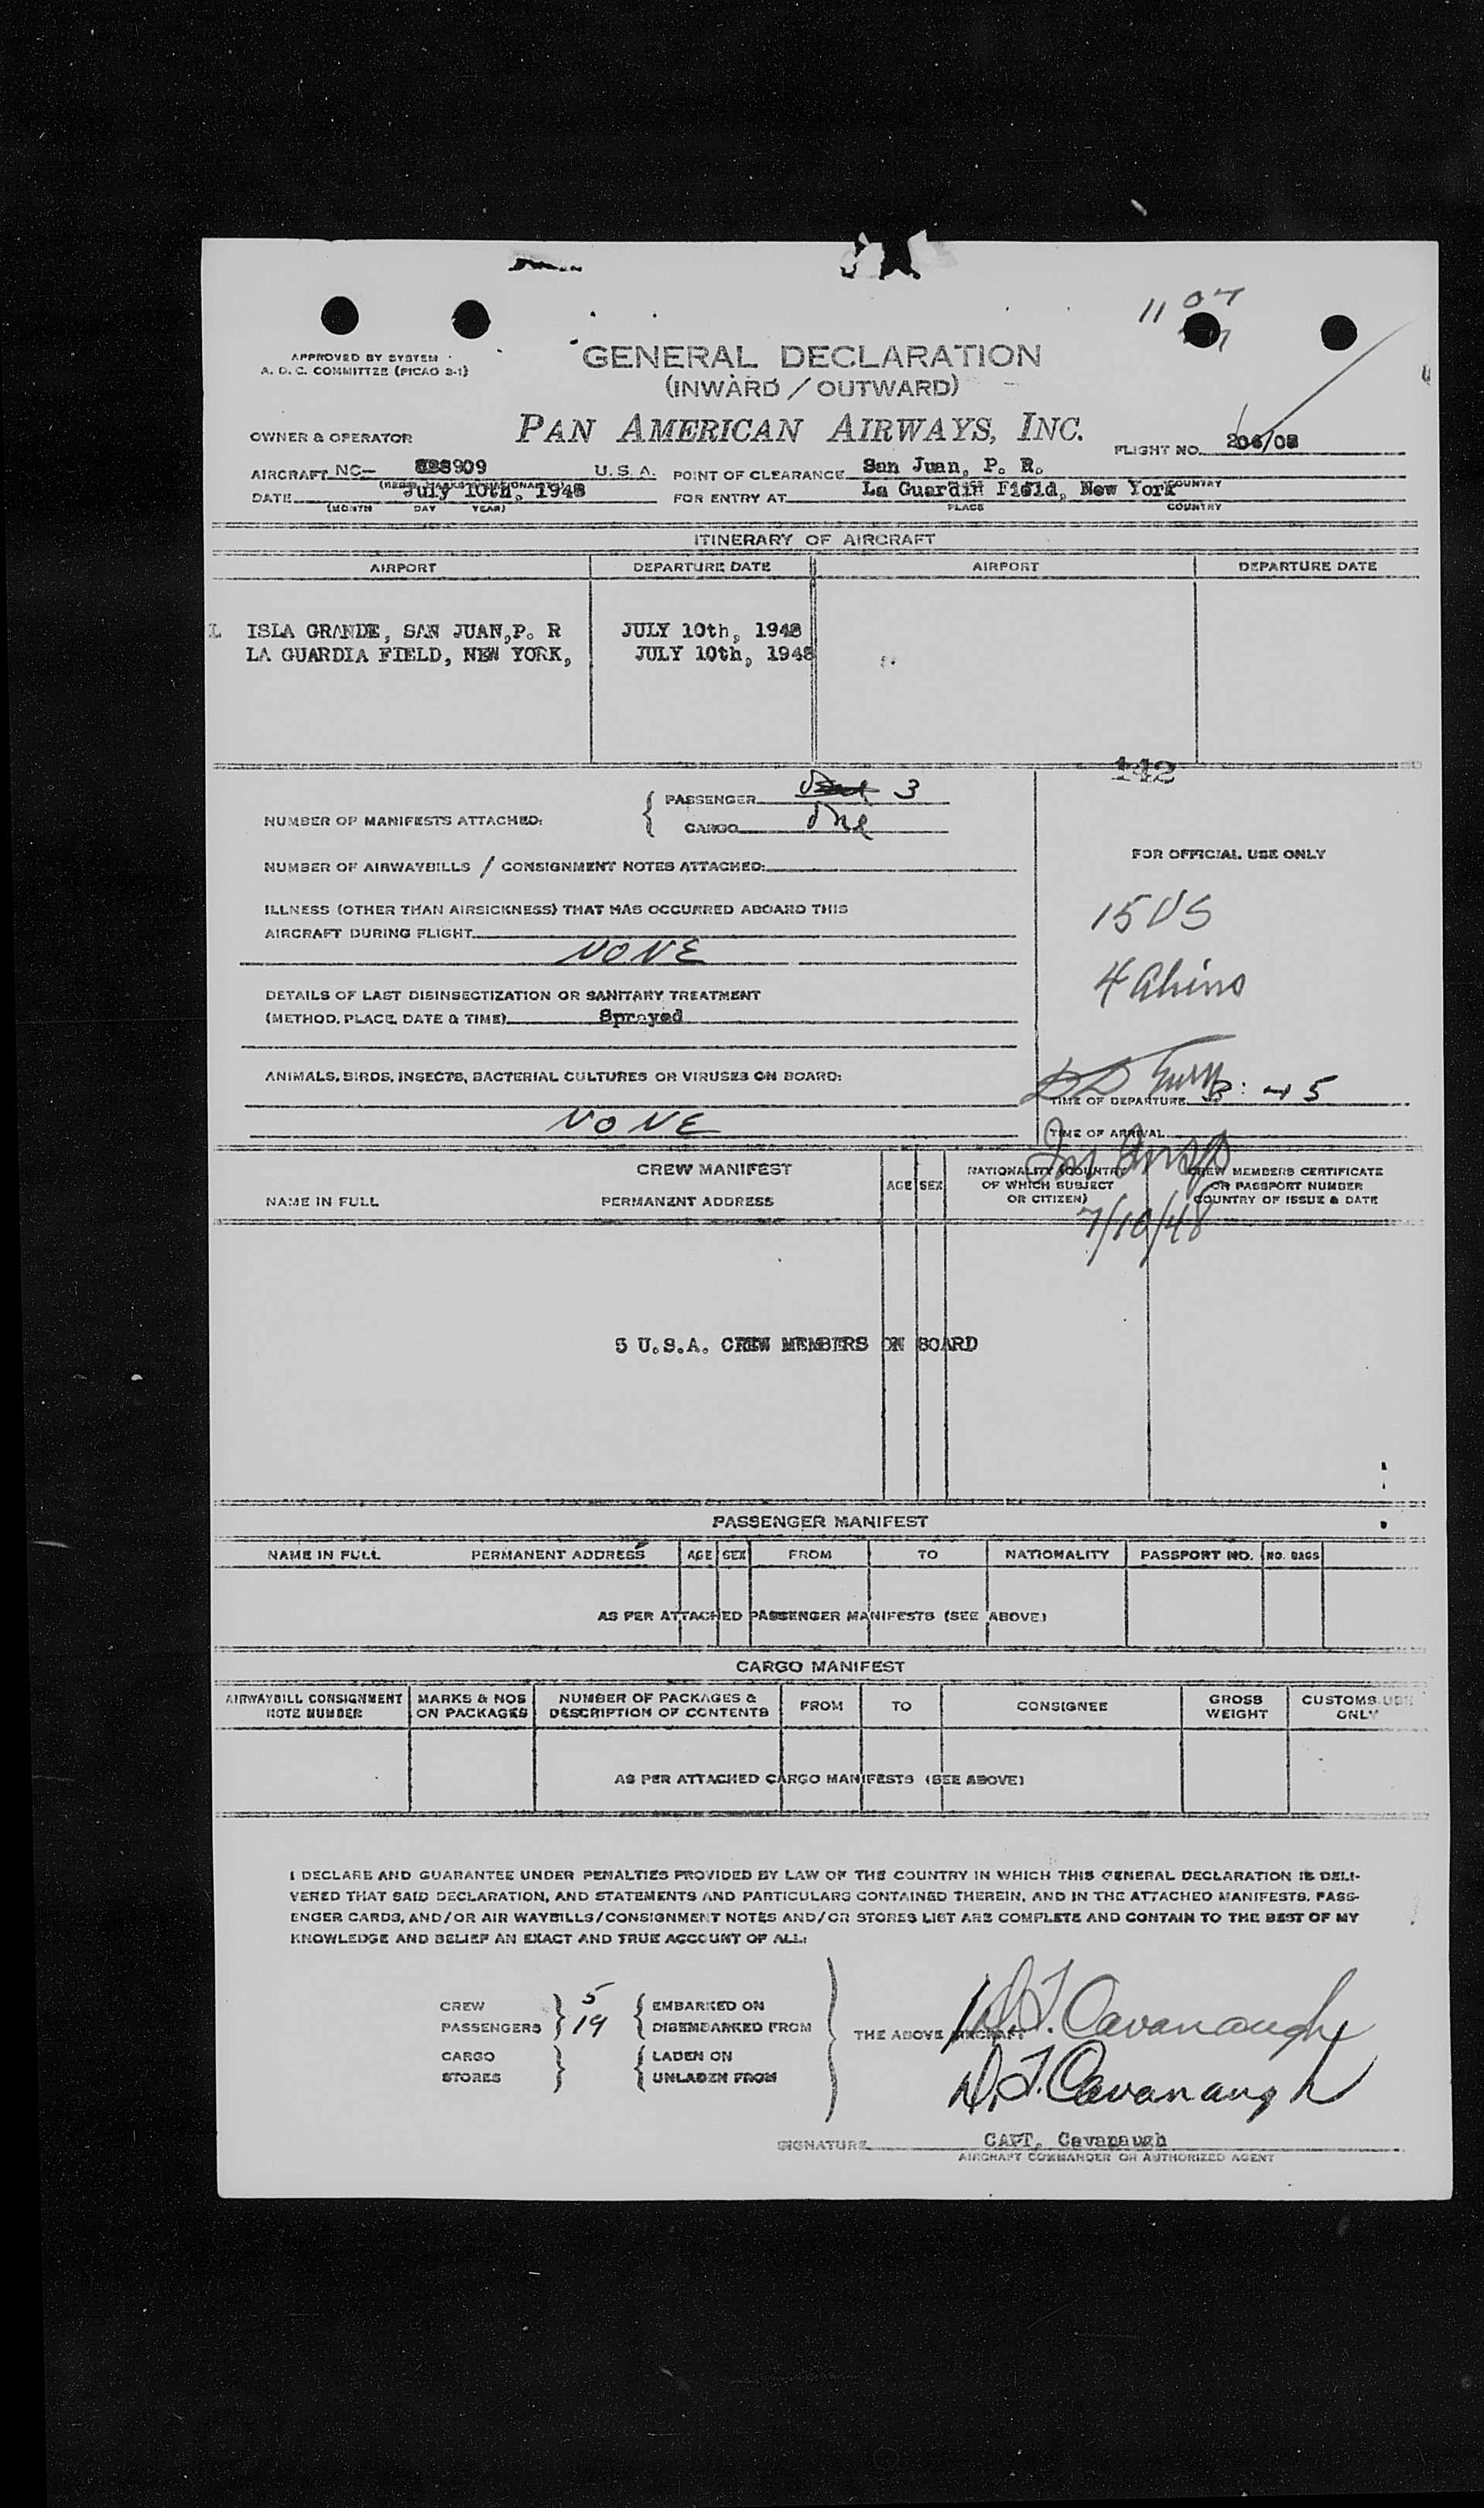 11 07
APPROVED BY SYSTEM
A. O. C. COMMITTEE (PICAO 3-1)
GENERAL DECLARATION
(INWARD / OUTWARD)
OWNER & OPERATOR PAN AMERICAN AIRWAYS, INC. FLIGHT NO. 206/08
AIRCRAFT NC- 88909 U. S. A. POINT OF CLEARANCE San Juan, P. R.
COUNTRY
DATE July 10th, 1948 FOR ENTRY AT La Guardia Field, New York
(MONTH DAY YEAR) PLACE COUNTRY
ITINERARY OF AIRCRAFT
AIRPORT DEPARTURE DATE AIRPORT DEPARTURE DATE
ISLA GRANDE, SAN JUAN,P. R JULY 10th, 1948
LA GUARDIA FIELD, NEW YORK, JULY 10th, 1948
142
NUMBER OF MANIFESTS ATTACHED: { PASSENGER 3
CARGO One
FOR OFFICIAL USE ONLY
NUMBER OF AIRWAYBILLS / CONSIGNMENT NOTES ATTACHED:
ILLNESS (OTHER THAN AIRSICKNESS) THAT HAS OCCURRED ABOARD THIS
AIRCRAFT DURING FLIGHT
NONE
15 US
4 Aliens
DETAILS OF LAST DISINSECTIZATION OR SANITARY TREATMENT
(METHOD, PLACE, DATE & TIME) Sprayed
ANIMALS, BIRDS, INSECTS, BACTERIAL CULTURES OR VIRUSES ON BOARD:
NONE
TIME OF DEPARTURE : 45
TIME OF ARRIVAL
CREW MANIFEST
NAME IN FULL PERMANENT ADDRESS AGE SEX NATIONALITY (COUNTRY OF WHICH SUBJECT OR CITIZEN) CREW MEMBERS CERTIFICATE OR PASSPORT NUMBER COUNTRY OF ISSUE & DATE
7/10/48
5 U.S.A. CREW MEMBERS ON BOARD
PASSENGER MANIFEST
NAME IN FULL PERMANENT ADDRESS AGE SEX FROM TO NATIONALITY PASSPORT NO. NO. BAGS
AS PER ATTACHED PASSENGER MANIFESTS (SEE ABOVE)
CARGO MANIFEST
AIRWAYBILL CONSIGNMENT NOTE NUMBER MARKS & NOS ON PACKAGES NUMBER OF PACKAGES & DESCRIPTION OF CONTENTS FROM TO CONSIGNEE GROSS WEIGHT CUSTOMS USE ONLY
AS PER ATTACHED CARGO MANIFESTS (SEE ABOVE)
I DECLARE AND GUARANTEE UNDER PENALTIES PROVIDED BY LAW OF THE COUNTRY IN WHICH THIS GENERAL DECLARATION IS DELI-
VERED THAT SAID DECLARATION, AND STATEMENTS AND PARTICULARS CONTAINED THEREIN, AND IN THE ATTACHED MANIFESTS, PASS-
ENGER CARDS, AND/OR AIR WAYBILLS/CONSIGNMENT NOTES AND/OR STORES LIST ARE COMPLETE AND CONTAIN TO THE BEST OF MY
KNOWLEDGE AND BELIEF AN EXACT AND TRUE ACCOUNT OF ALL:
CREW 5 EMBARKED ON
PASSENGERS 19 DISEMBARKED FROM THE ABOVE AIRCRAFT D.T. Cavanaugh
CARGO LADEN ON
STORES UNLADEN FROM D.T. Cavanaugh
SIGNATURE CAPT. Cavanaugh
AIRCRAFT COMMANDER OR AUTHORIZED AGENT